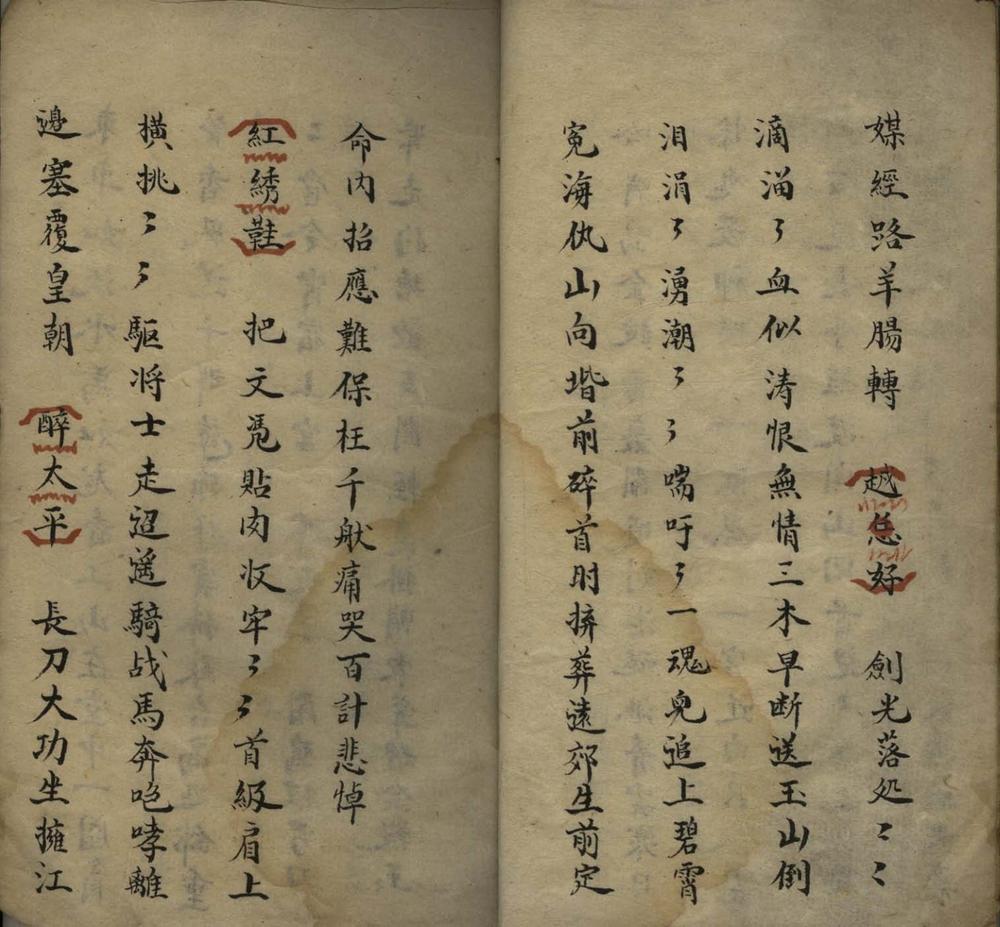 媒經路羊腸轉 越恁好 劍光落処〻〻
滴溜〻血似涛恨無情三木早断送玉山倒
泪涓〻湧潮〻〻喘吁〻一魂兒追上碧霄
冤海仇山向堦前碎首肘摒葬遠郊生前定
命内招應難保枉千般痛哭百計悲悼
紅綉鞋 把文凴貼肉收牢〻〻首級肩上
橫挑〻〻駆将士走迢遥騎战馬奔咆哮離
邊塞覆皇朝 醉太平 長刀大功坐擁江